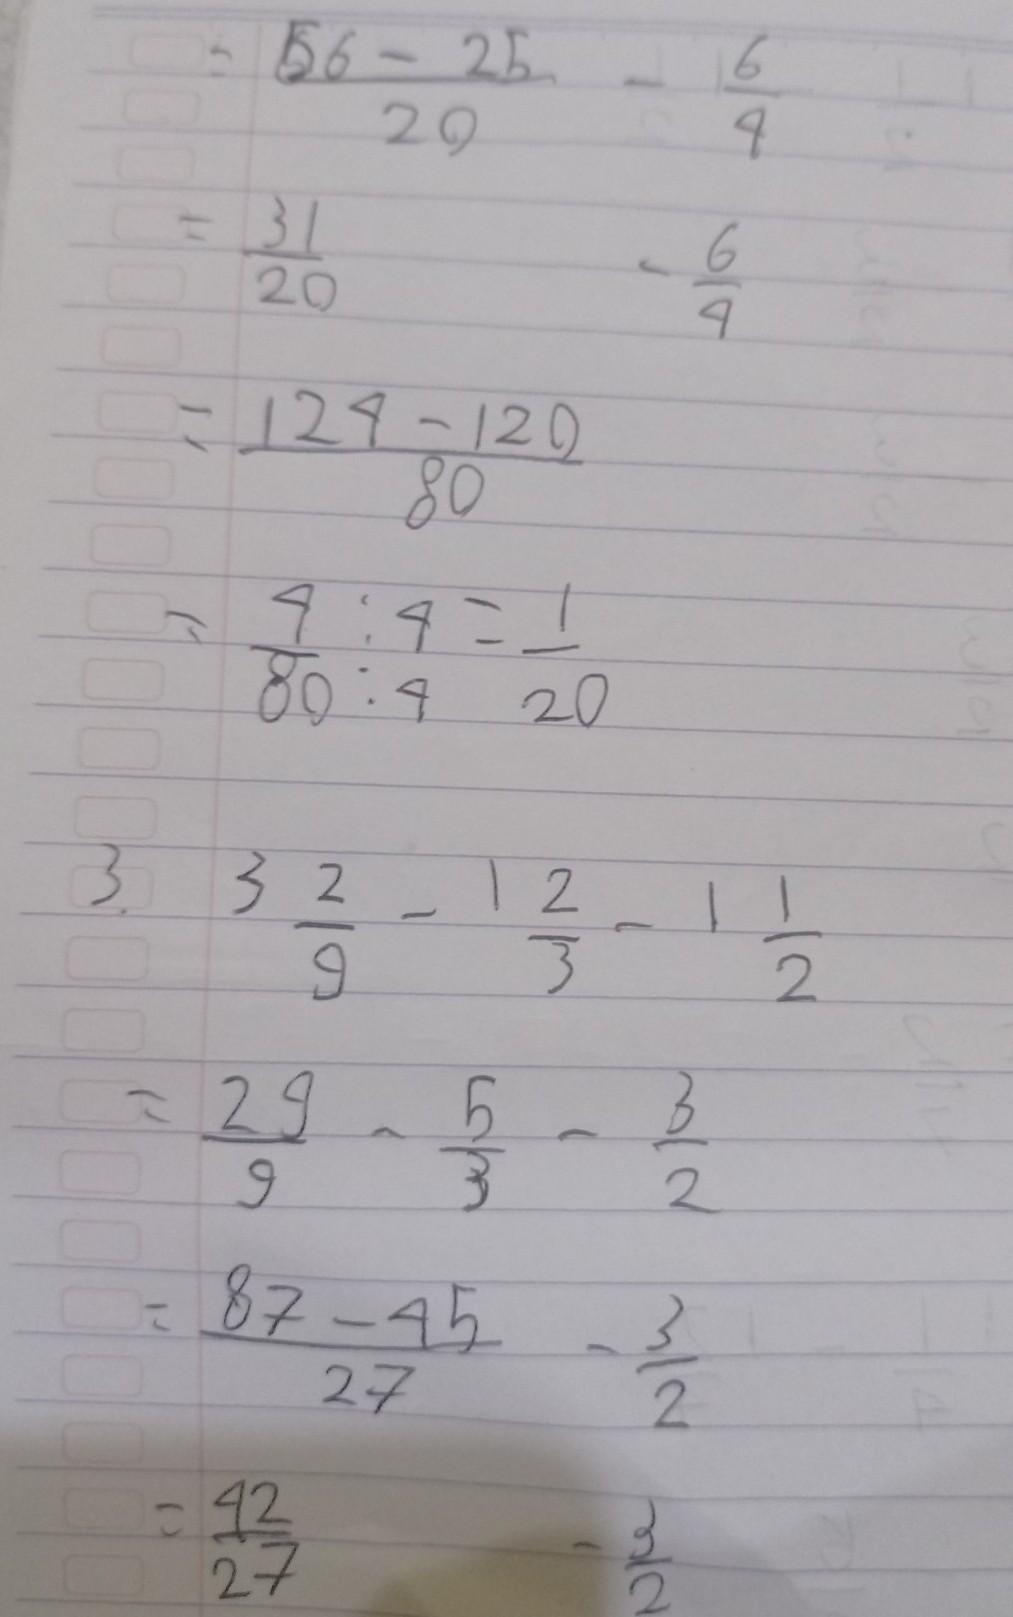 = 56 - 25/20 - 6/4
= 31/20 - 6/4
= 124 - 120/80
= 4 : 4/80 : 4 = 1/20
3. 3 2/9 - 1 2/3 - 1 1/2
= 29/9 - 5/3 - 3/2
= 87 - 45/27 - 3/2
= 42/27 - 3/2